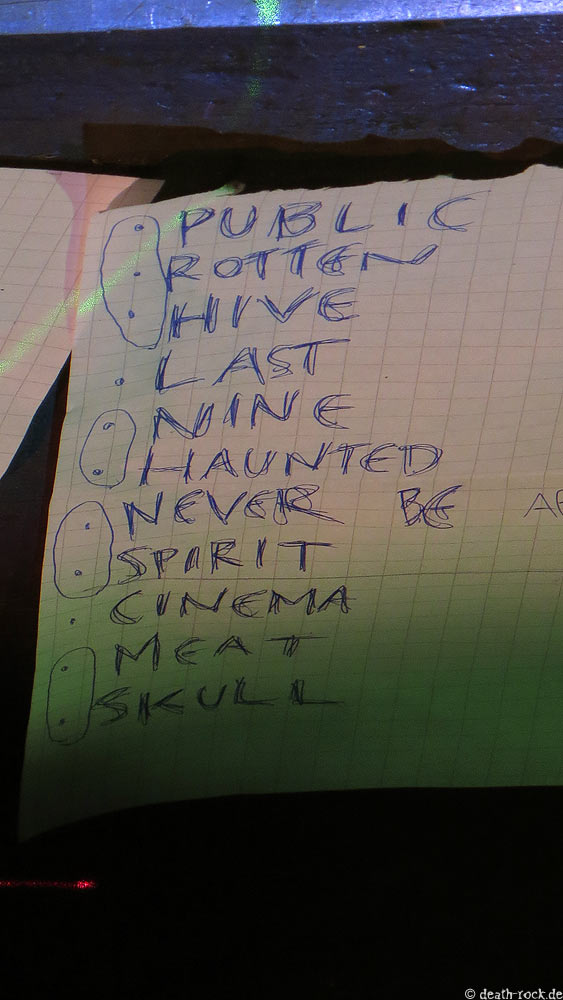 PUBLIC
ROTTEN
HIVE
LAST
NINE
HAUNTED
NEVER BE
SPIRIT
CINEMA
MEAT
SKULL
© death-rock.de